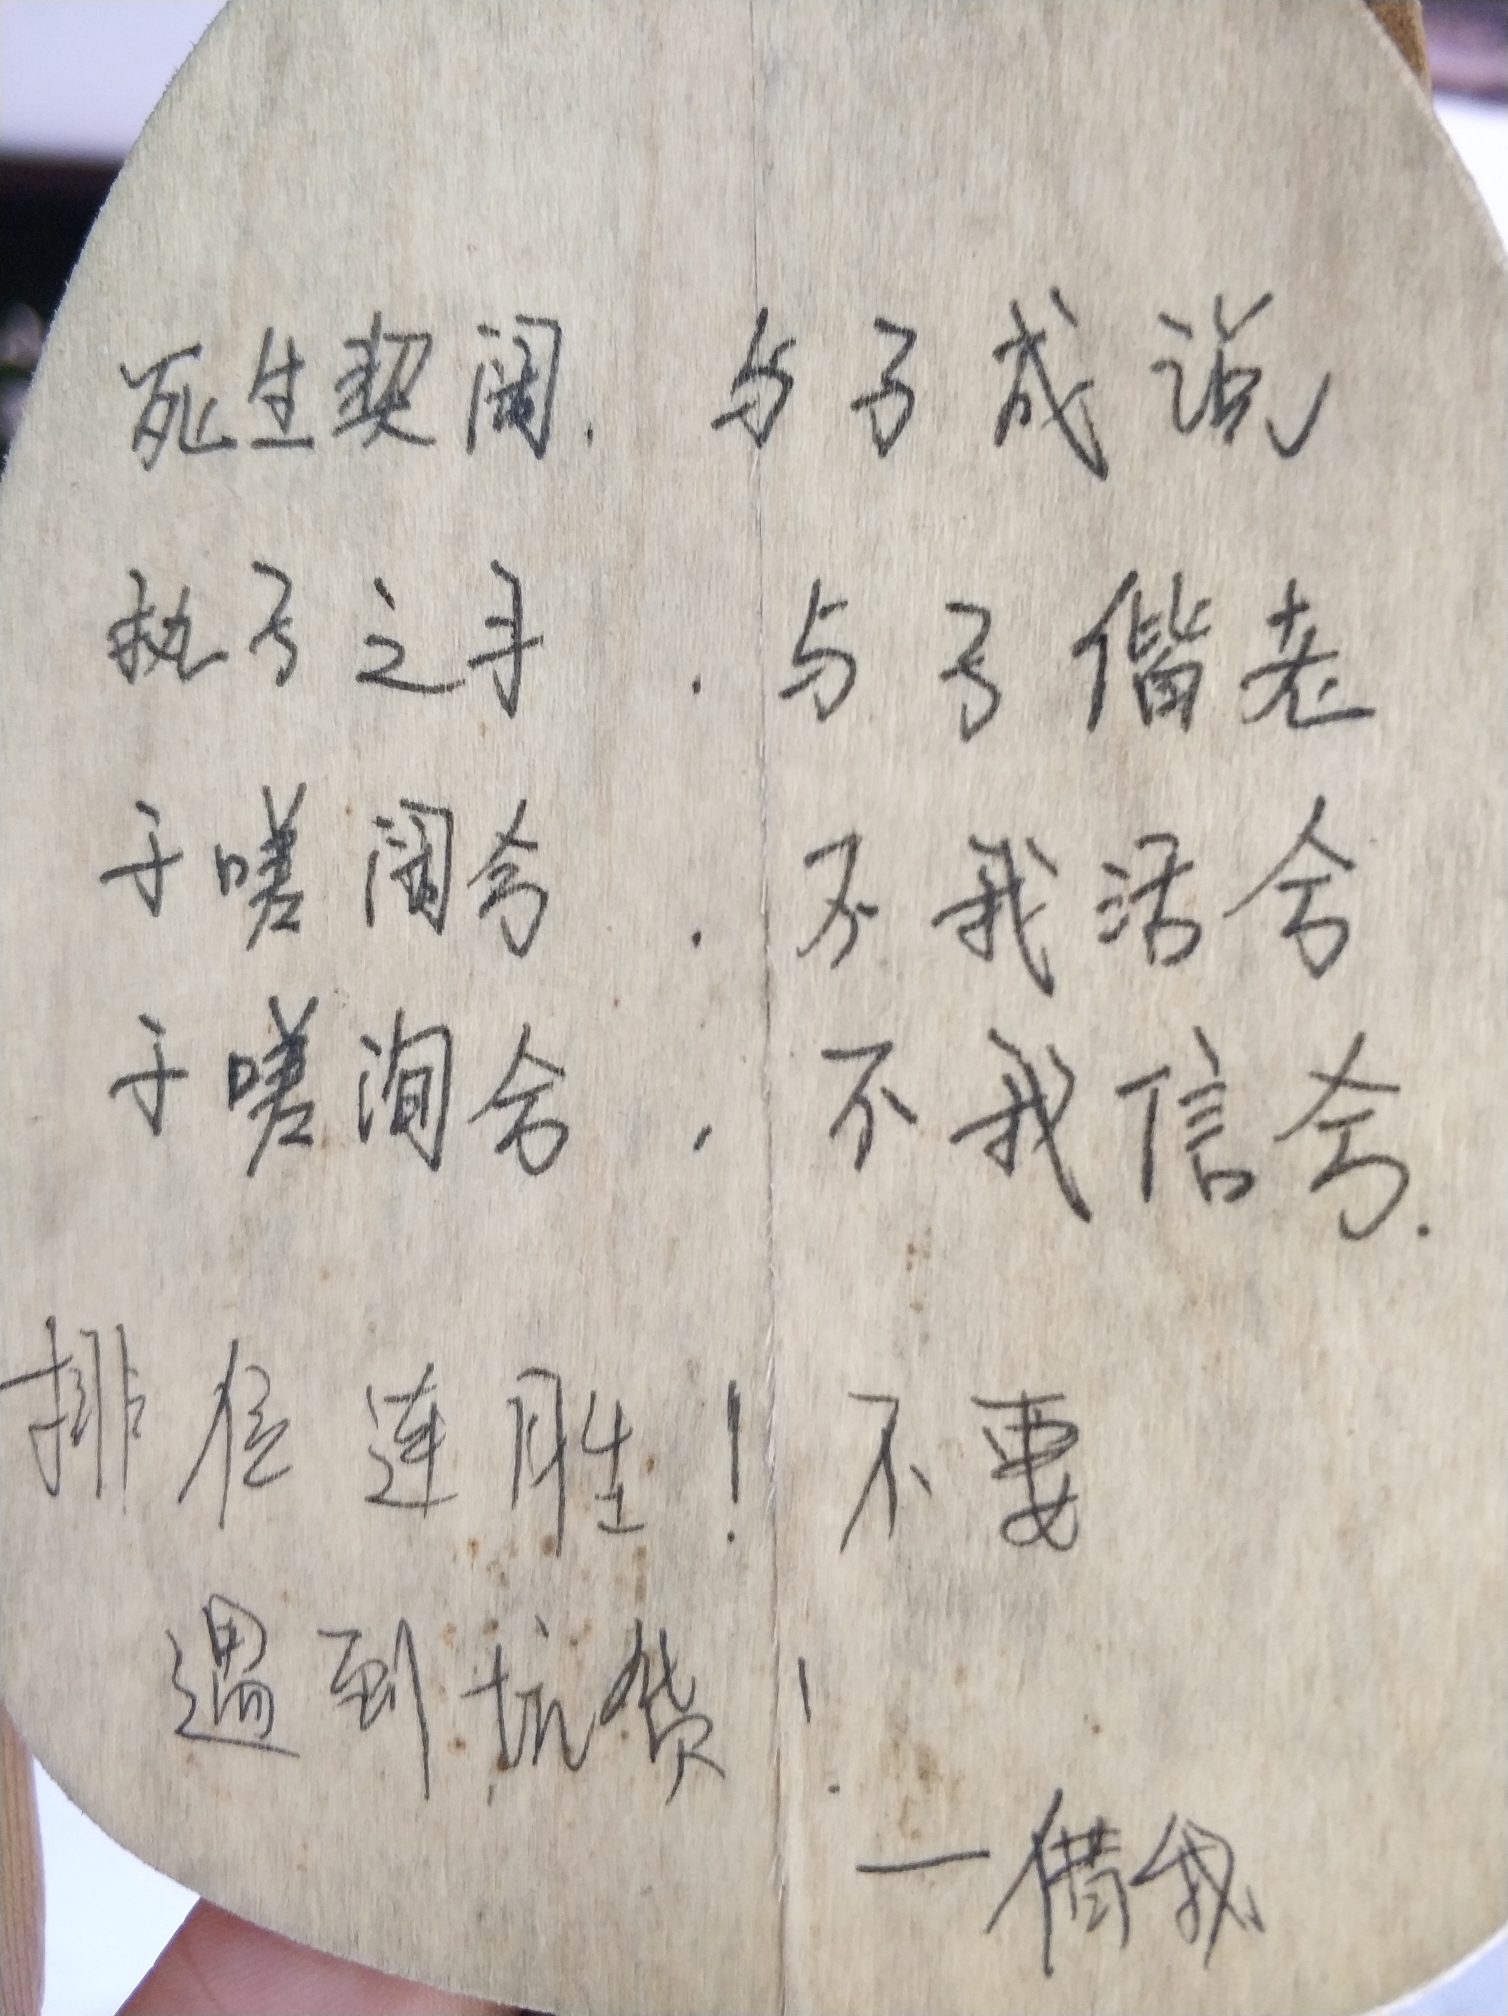 死生契阔.与子成说
执子之手.与子偕老
于嗟阔兮.不我活兮
于嗟洵兮,不我信兮.
排位连胜!不要
遇到坑货!
一借我